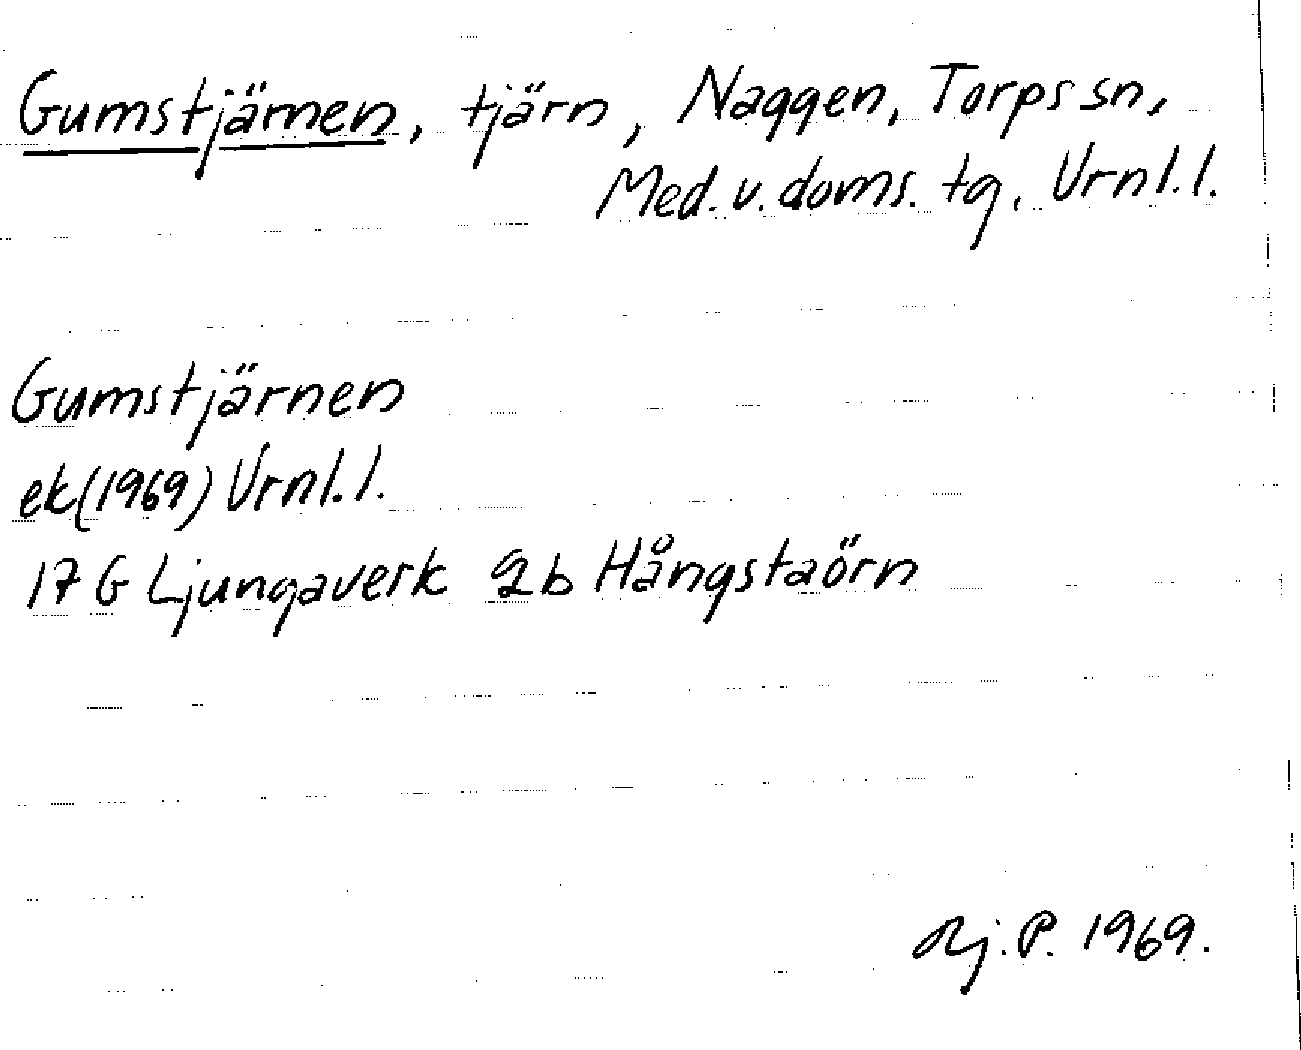 Gumstjärnen, tjärn, Naggen, Torps sn,
Med. v. doms. tg. Vrnl. l.
Gumstjärnen
ek(1969) Vrnl. l.
17 G Ljungaverk 9b Hångstaörn
Rj. P. 1969.